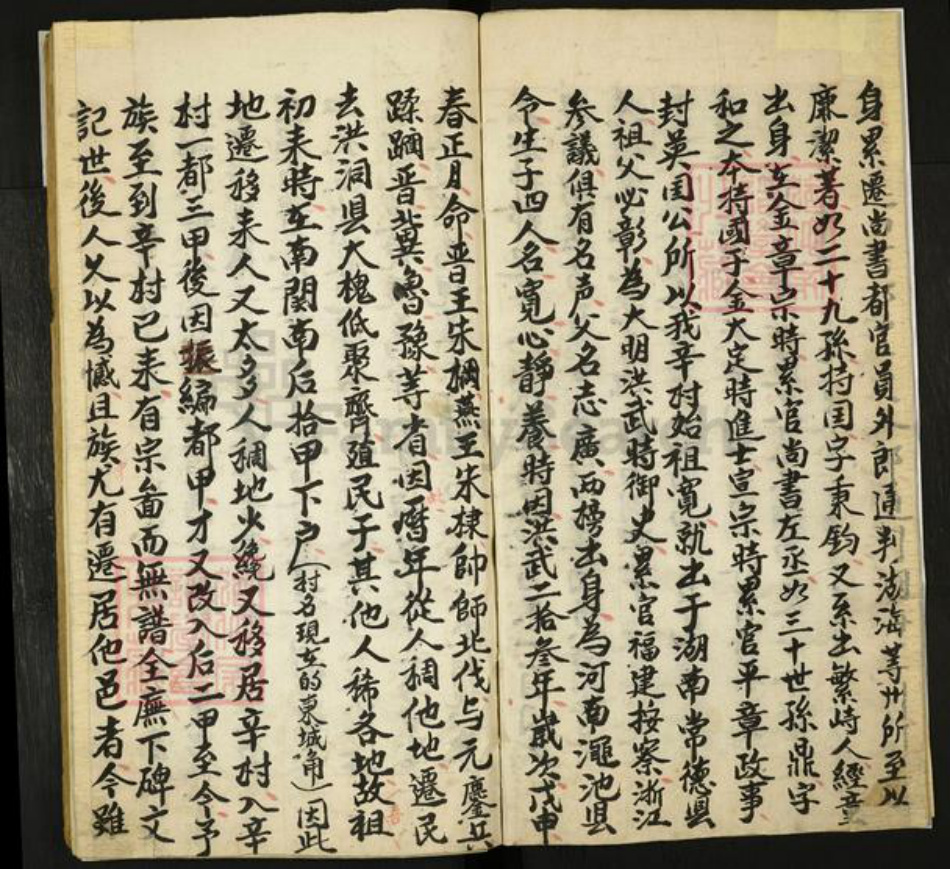 身累遷尚書都官員外郎通判湖海等州所至以
廉潔著如二十九孫持国字秉鈞又系出繁峙人經童
出身至金章宗時累官尚書左丞如三十世孫鼎字
和之本持國子金大定時進士宣宗時累官平章政事
封英国公所以我辛村始祖寬就出于湖南常德県
人祖父必彰為大明洪武時御史累官福建按察浙江
参議俱有名声父名志廣兩榜出身為河南澠池県
令生子四人名寬心靜養時因洪武二拾叁年歲次戊申
春正月命晋王朱棡燕王朱棣帥師北伐与元鏖兵
蹂躏晋冀魯豫等省因曆年從人稠他地遷民
去洪洞県大槐低聚齊殖民于其他人稀各地故祖
初来時至南関南后拾甲下户（村名現在的東城角）因此
地遷移来人又太多人稠地少纔又移居辛村入辛
村一都三甲後因編都甲才又改入后二甲至今予
族至到辛村已来有宗畣而無譜全廡下碑文
記世後人父以為憾且族尤有遷居他邑者今雖